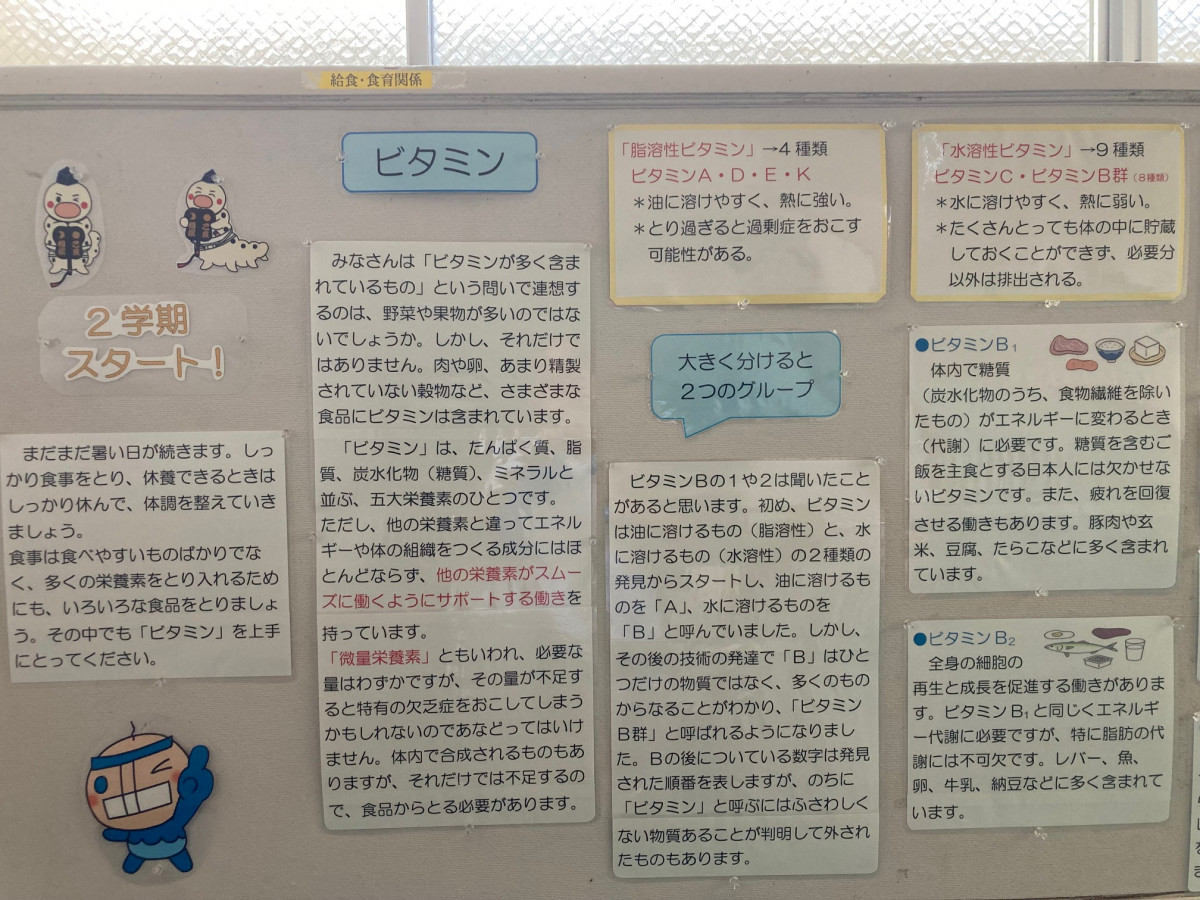 給食・食育関係
2学期
スタート！
まだまだ暑い日が続きます。しっ
かり食事をとり、休養できるときは
しっかり休んで、体調を整えていき
ましょう。
食事は食べやすいものばかりでな
く、多くの栄養素をとり入れるため
にも、いろいろな食品をとりましょ
う。その中でも「ビタミン」を上手
にとってください。
ビタミン
みなさんは「ビタミンが多く含ま
れているもの」という問いで連想す
るのは、野菜や果物が多いのではな
いでしょうか。しかし、それだけで
はありません。肉や卵、あまり精製
されていない穀物など、さまざまな
食品にビタミンは含まれています。
「ビタミン」は、たんぱく質、脂
質、炭水化物（糖質）、ミネラルと
並ぶ、五大栄養素のひとつです。
ただし、他の栄養素と違ってエネル
ギーや体の組織をつくる成分にはほ
とんどならず、他の栄養素がスムー
ズに働くようにサポートする働きを
持っています。
「微量栄養素」ともいわれ、必要な
量はわずかですが、その量が不足す
ると特有の欠乏症をおこしてしまう
かもしれないのであなどってはいけ
ません。体内で合成されるものもあ
りますが、それだけでは不足するの
で、食品からとる必要があります。
「脂溶性ビタミン」→4種類
ビタミンA・D・E・K
＊油に溶けやすく、熱に強い。
＊とり過ぎると過剰症をおこす
可能性がある。
大きく分けると
2つのグループ
ビタミンBの1や2は聞いたこと
があると思います。初め、ビタミン
は油に溶けるもの（脂溶性）と、水
に溶けるもの（水溶性）の2種類の
発見からスタートし、油に溶けるも
のを「A」、水に溶けるものを
「B」と呼んでいました。しかし、
その後の技術の発達で「B」はひと
つだけの物質ではなく、多くのもの
からなることがわかり、「ビタミン
B群」と呼ばれるようになりまし
た。Bの後についている数字は発見
された順番を表しますが、のちに
「ビタミン」と呼ぶにはふさわしく
ない物質あることが判明して外され
たものもあります。
「水溶性ビタミン」→9種類
ビタミンC・ビタミンB群（8種類）
＊水に溶けやすく、熱に弱い。
＊たくさんとっても体の中に貯蔵
しておくことができず、必要分
以外は排出される。
●ビタミンB₁
体内で糖質
（炭水化物のうち、食物繊維を除い
たもの）がエネルギーに変わるとき
（代謝）に必要です。糖質を含むご
飯を主食とする日本人には欠かせな
いビタミンです。また、疲れを回復
させる働きもあります。豚肉や玄
米、豆腐、たらこなどに多く含まれ
ています。
●ビタミンB₂
全身の細胞の
再生と成長を促進する働きがありま
す。ビタミンB₁と同じくエネルギ
ー代謝に必要ですが、特に脂肪の代
謝には不可欠です。レバー、魚、
卵、牛乳、納豆などに多く含まれて
います。